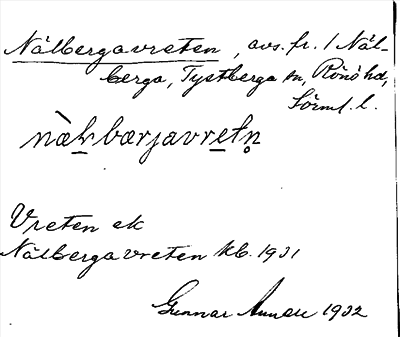 Nälbergavreten, avs. fr. 1 Näl-
berga, Tystberga sn, Rönö hd,
Sörml. l.
nàḷbærjavretn̥
Vreten ek
Nälbergavreten kb. 1931
Gunnar 1932